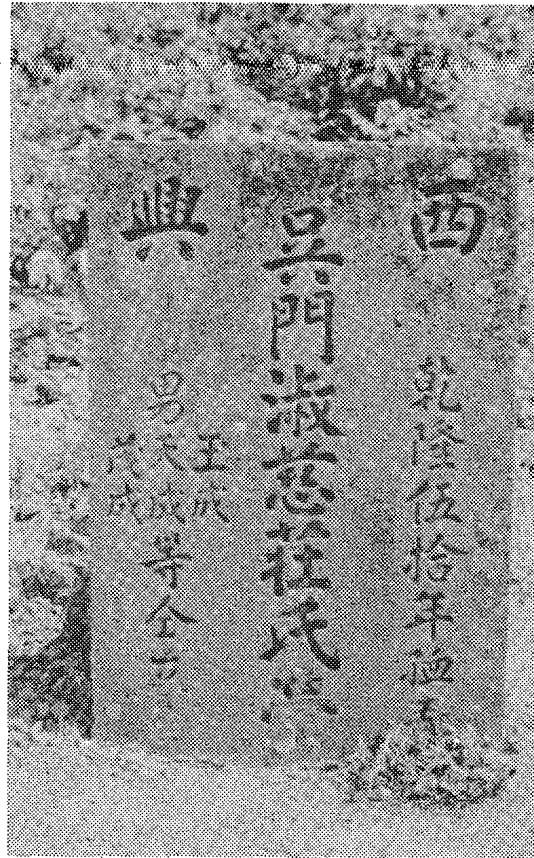 西興
乾隆伍拾年
吳門淑慈莊氏
男
玉成
天成
茂成
等仝立